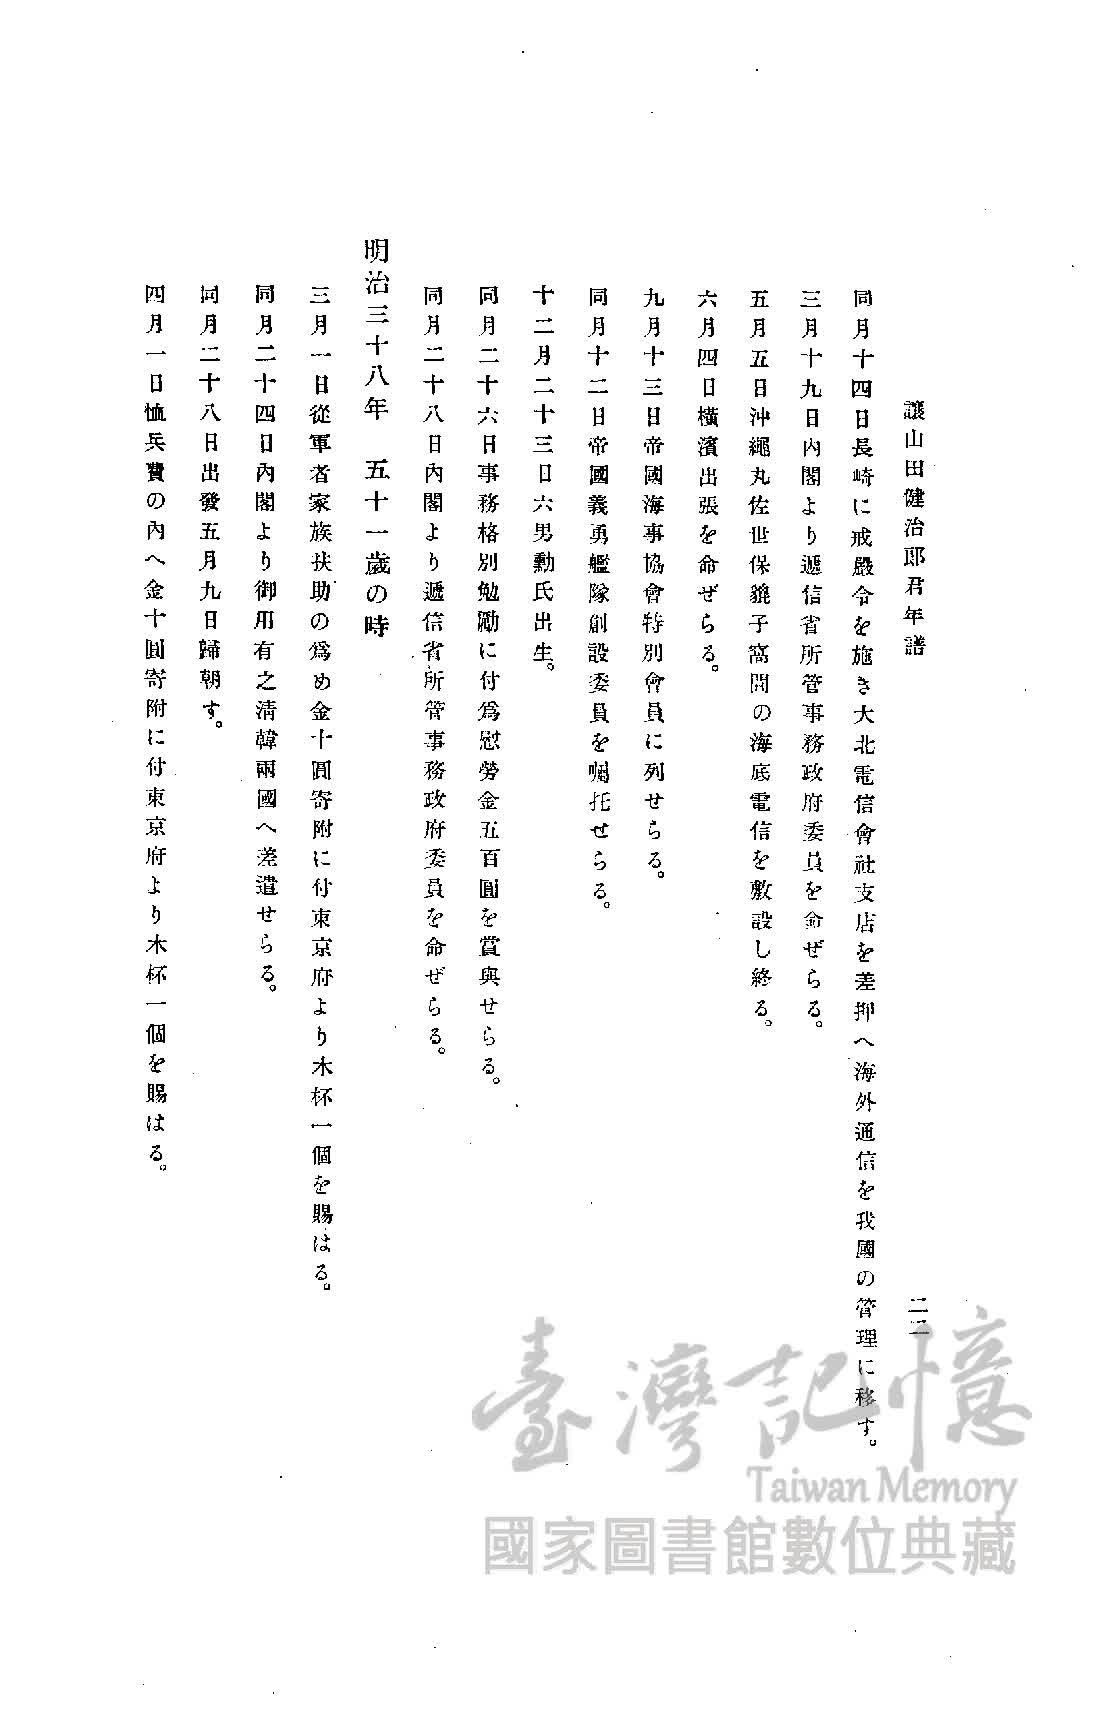 讓山田健治郎君年譜
二二
同月十四日長崎に戒嚴令を施き大北電信會社支店を差押へ海外通信を我國の管理に移す。
三月十九日內閣より遞信省所管事務政府委員を命ぜらる。
五月五日沖繩丸佐世保貔子窩間の海底電信を敷設し終る。
六月四日橫濱出張を命ぜらる。
九月十三日帝國海事協會特別會員に列せらる。
同月十二日帝國義勇艦隊創設委員を囑托せらる。
十二月二十三日六男勳氏出生。
同月二十六日事務格別勉勵に付爲慰勞金五百圓を賞與せらる。
同月二十八日內閣より遞信省所管事務政府委員を命ぜらる。
明治三十八年　五十一歲の時
三月一日從軍者家族扶助の爲め金十圓寄附に付東京府より木杯一個を賜はる。
同月二十四日內閣より御用有之淸韓兩國へ差遣せらる。
同月二十八日出發五月九日歸朝す。
四月一日恤兵費の內へ金十圓寄附に付東京府より木杯一個を賜はる。
臺灣記憶
Taiwan Memory
國家圖書館數位典藏